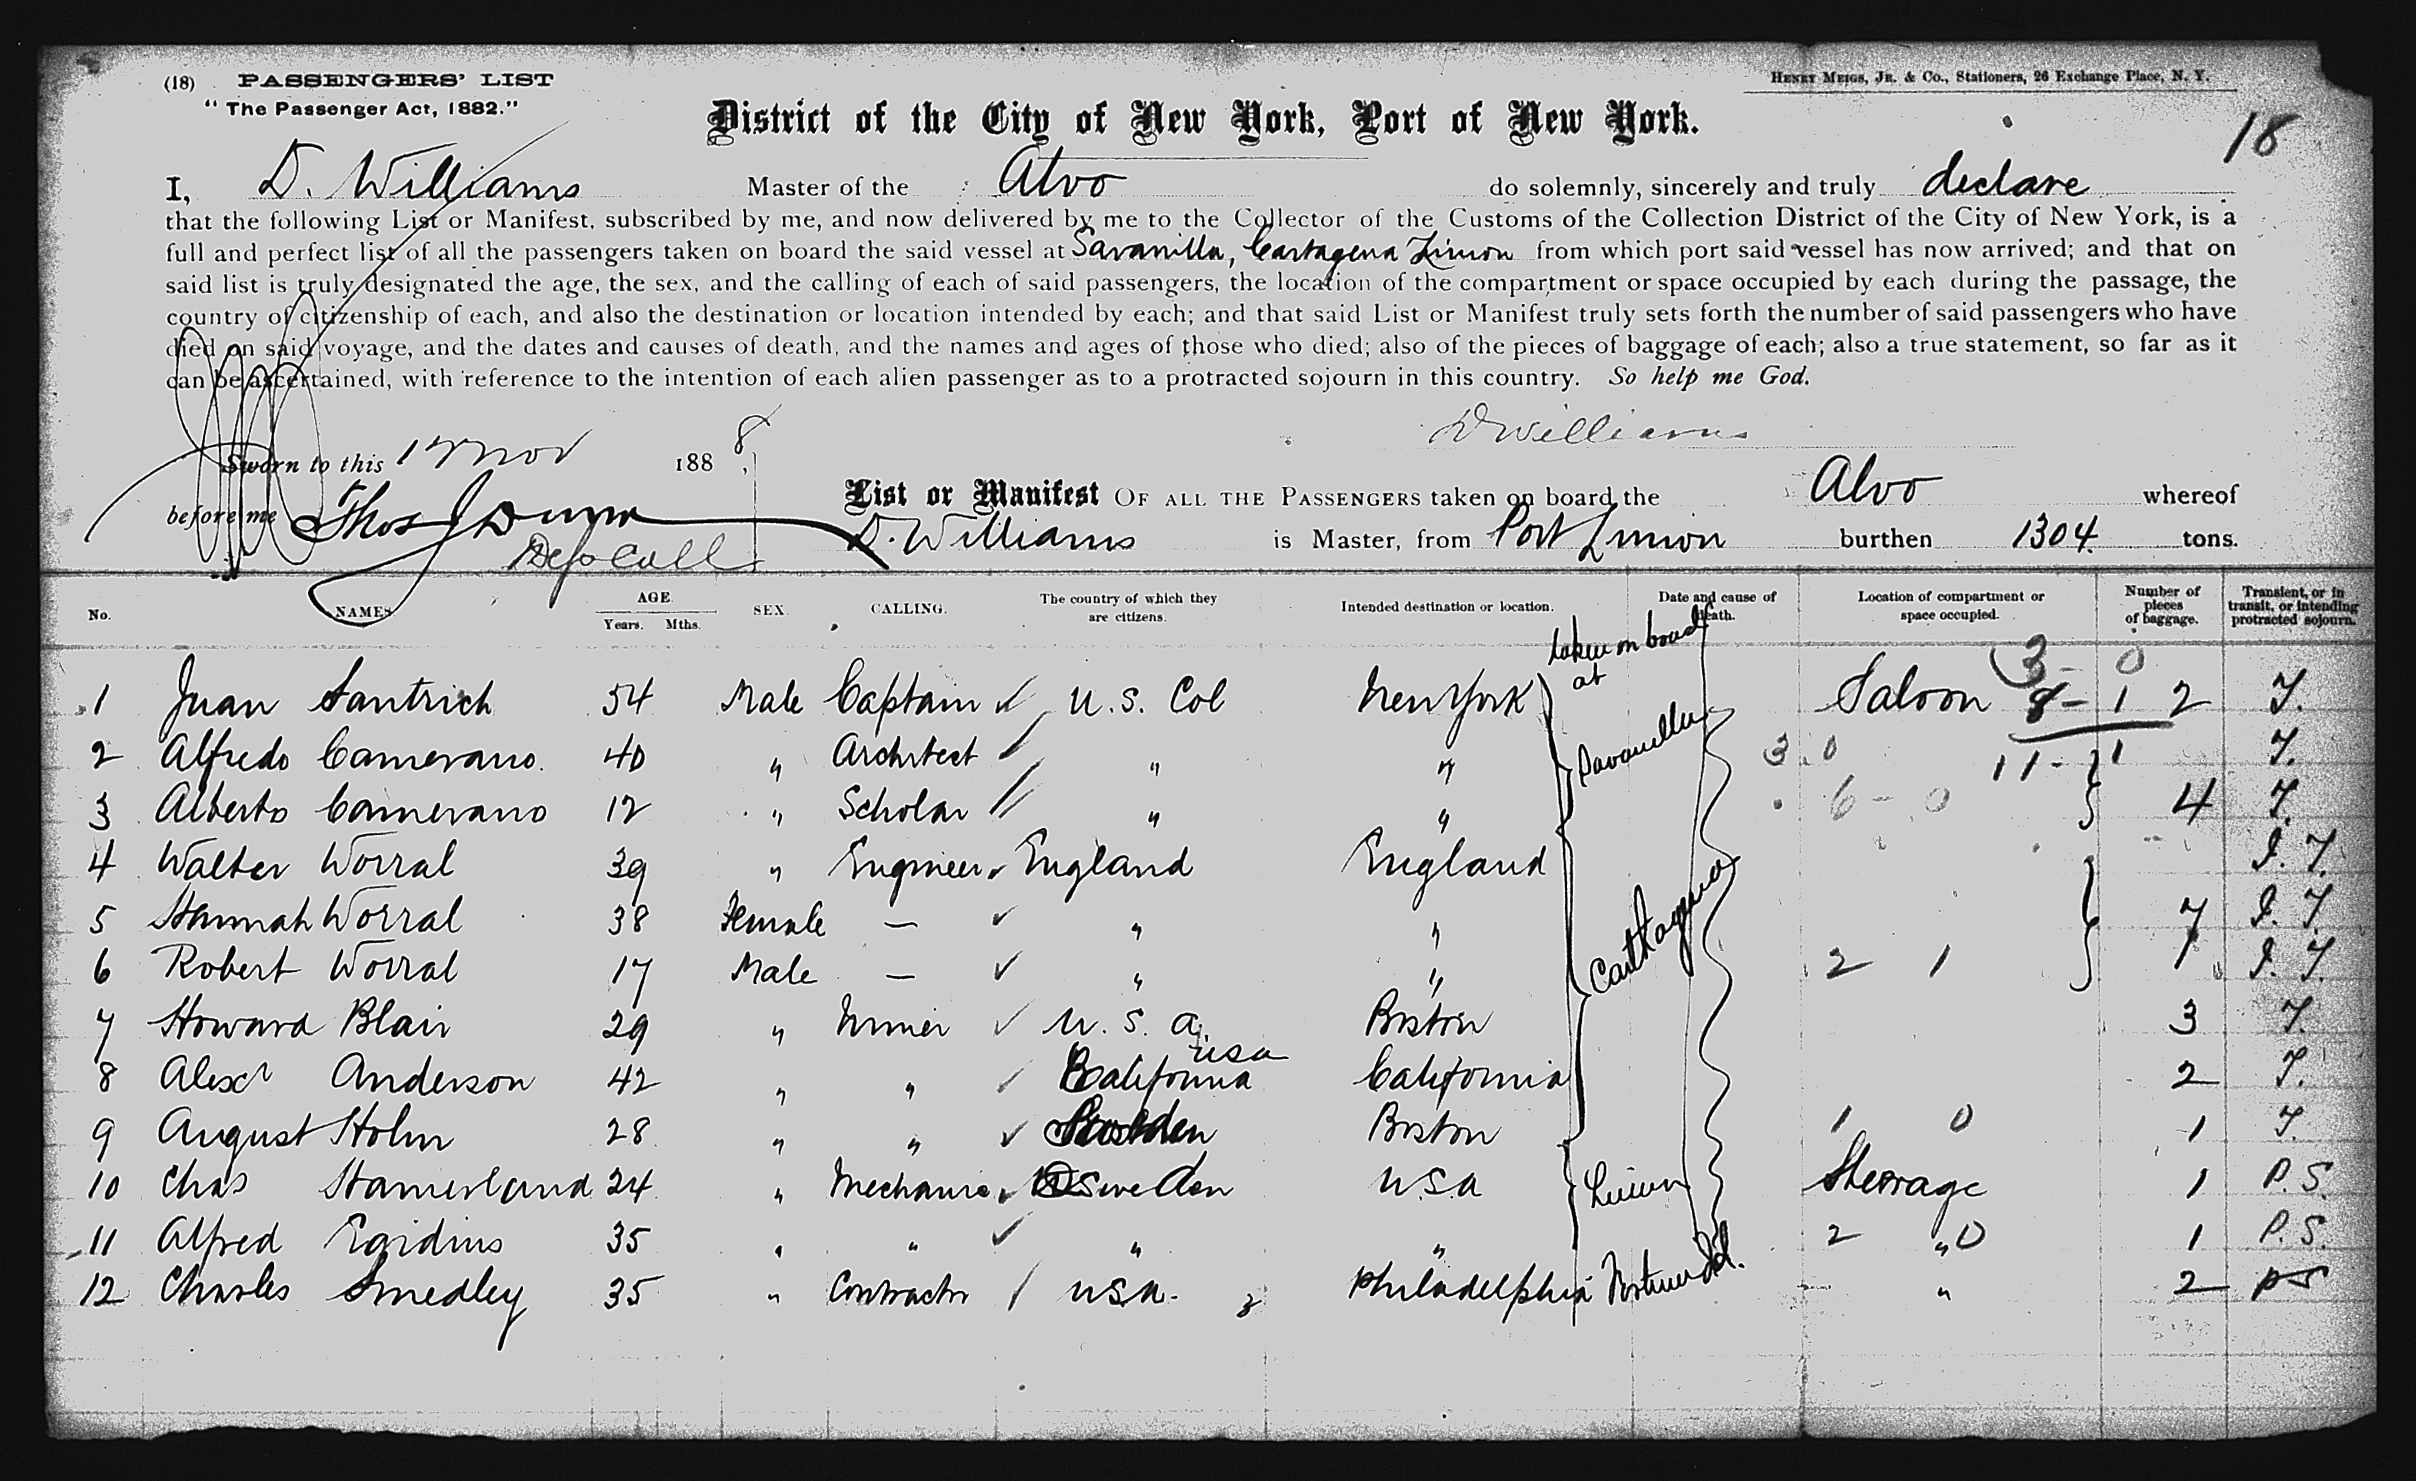 (18) PASSENGERS' LIST
HENRY MEIGS, JR. & CO., Stationers, 26 Exchange Place, N. Y.
"The Passenger Act, 1882."
District of the City of New York, Port of New York.
18
I, D. Williams Master of the Alvo do solemnly, sincerely and truly declare
that the following List or Manifest, subscribed by me, and now delivered by me to the Collector of the Customs of the Collection District of the City of New York, is a
full and perfect list of all the passengers taken on board the said vessel at Savanilla, Cartagena Limon from which port said vessel has now arrived; and that on
said list is truly designated the age, the sex, and the calling of each of said passengers, the location of the compartment or space occupied by each during the passage, the
country of citizenship of each, and also the destination or location intended by each; and that said List or Manifest truly sets forth the number of said passengers who have
died on said voyage, and the dates and causes of death, and the names and ages of those who died; also of the pieces of baggage of each; also a true statement, so far as it
can be ascertained, with reference to the intention of each alien passenger as to a protracted sojourn in this country. So help me God.
D Williams
Sworn to this 17 Nov 1888
before me Thos J Dunn
Dep Coll
List or Manifest OF ALL THE PASSENGERS taken on board the Alvo whereof
D. Williams is Master, from Port Limon burthen 1304 tons.
No. NAMES AGE. Years. Mths. SEX. CALLING. The country of which they are citizens. Intended destination or location. Date and cause of death. Location of compartment or space occupied. Number of pieces of baggage. Transient, or in transit, or intending protracted sojourn.
taken on board at
3 - 0
1 Juan Santrich 54 Male Captain U.S. Col New York Savanilla Saloon 8 - 1 2 T.
2 Alfredo Camerano. 40 " Architect " " 3. 0 11 - 1 T.
3 Alberto Camerano 12 " Scholar " " 6 - 0 4 T.
4 Walter Worral 39 " Engineer England England Carthagena I. T.
5 Hannah Worral 38 Female — " " 7 I. T.
6 Robert Worral 17 Male — " " 2 1 I. T.
7 Howard Blair 29 " Miner U. S. A. Boston 3 T.
8 Alexr Anderson 42 " " California usa California 2 T.
9 August Holm 28 " " Sweden Boston 1 0 1 T.
10 Chas Hamerland 24 " Mechanic Sweden U.S.A Limon Steerage 1 P. S.
11 Alfred Egidius 35 " " " " 2 " 0 1 P. S.
12 Charles Smedley 35 " Contractor USA. Philadelphia " 2 PS